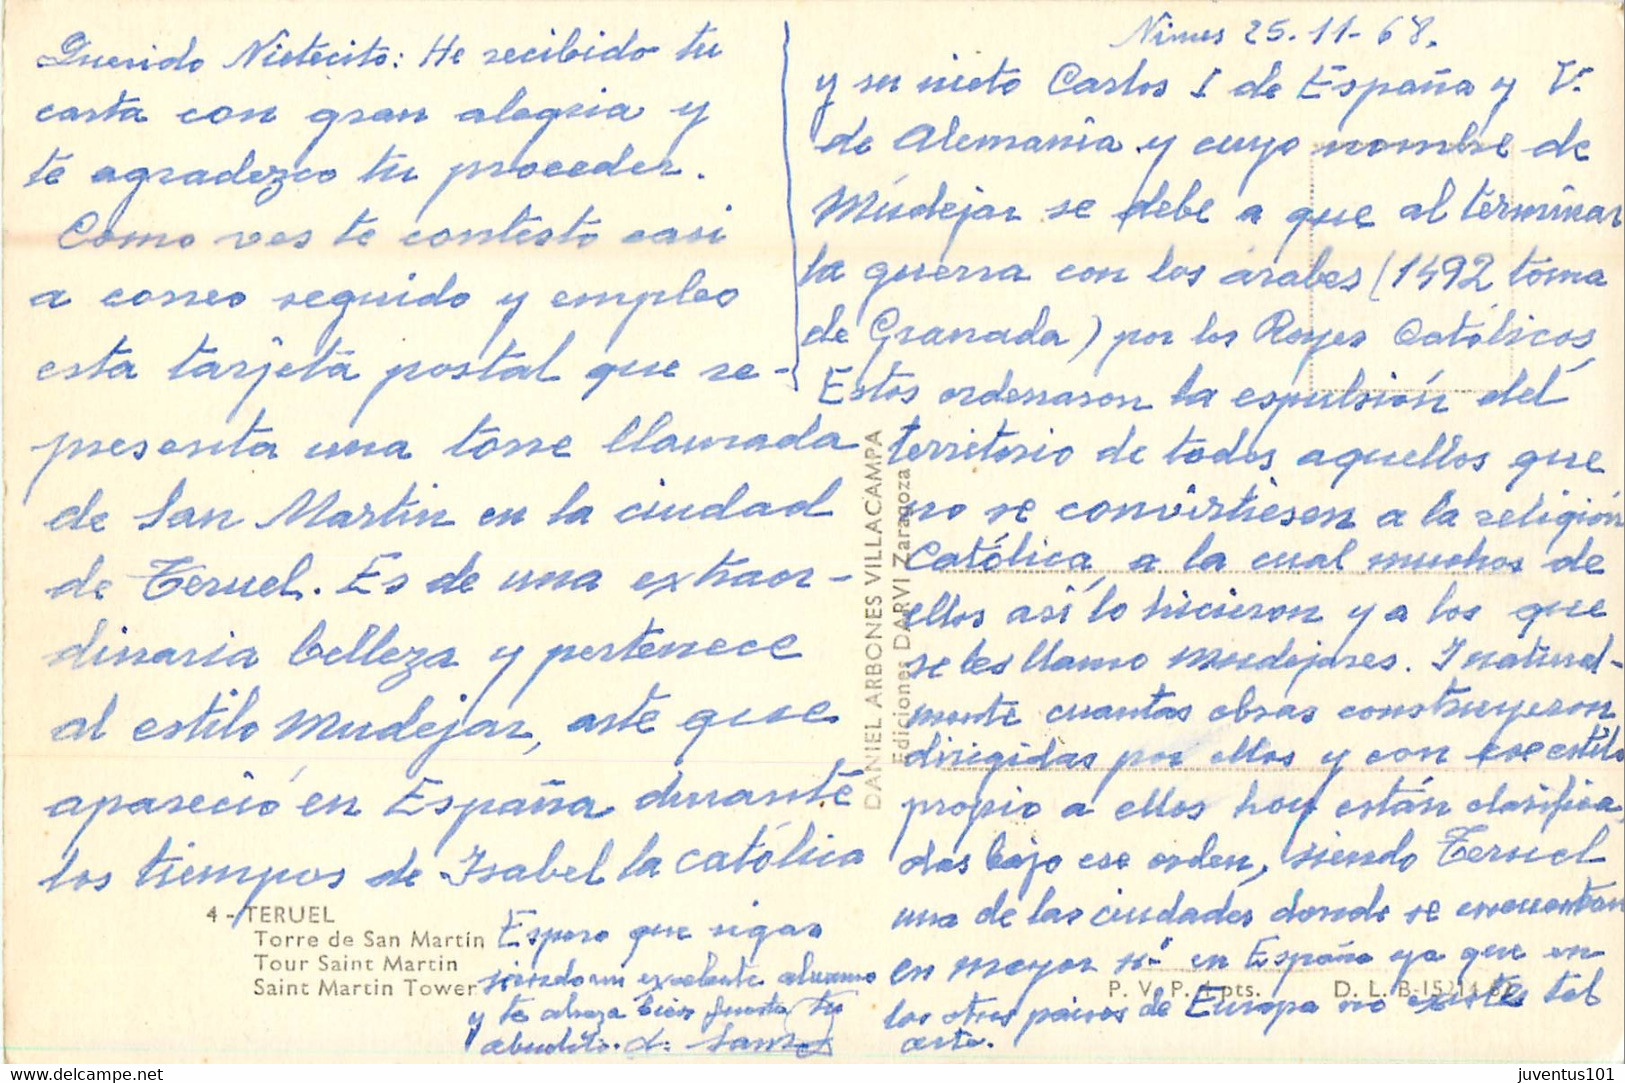 Querido Nietecito: He recibido tu
carta con gran alegria y
te agradezco tu proceder.
Como ves te contesto casi
a correo seguido y empleo
esta tarjeta postal que re-
presenta una torre llamada
de San Martin en la ciudad
de Teruel. Es de una extraor-
dinaria belleza y pertenece
al estilo Mudejar, arte que
apareció en España durante
los tiempos de Isabel la católica
Nimes 25-11-68.
y su nieto Carlos I de España y V.
de Alemania y cuyo nombre de
Múdejar se debe a que al terminar
la guerra con los arabes (1492 toma
de Granada) por los Reyes Católicos,
Estos ordenaron la espulsión del
territorio de todos aquellos que
no se convirtiesen a la religión
Católica, a la cual muchos de
ellos así lo hicieron y a los que
se les llamo mudejares. I natural-
mente cuantas obras construyeron
dirigidas por ellos y con ese estilo
propio a ellos hoy están clasifica
das bajo ese orden, siendo Teruel
una de las ciudades donde se encuentran
en mayor nº en España ya que en
los otros paises de Europa no existe tal
arte.
Espero que sigas
siendo un excelente alumno
y te abraza bien fuerte tu
abuelito. d.
4 - TERUEL
Torre de San Martín
Tour Saint Martin
Saint Martin Tower
DANIEL ARBONES VILLACAMPA
Ediciones DARVI Zaragoza
P. V. P. 4 pts.
D. L. B-15214
www.delcampe.net
juventus101